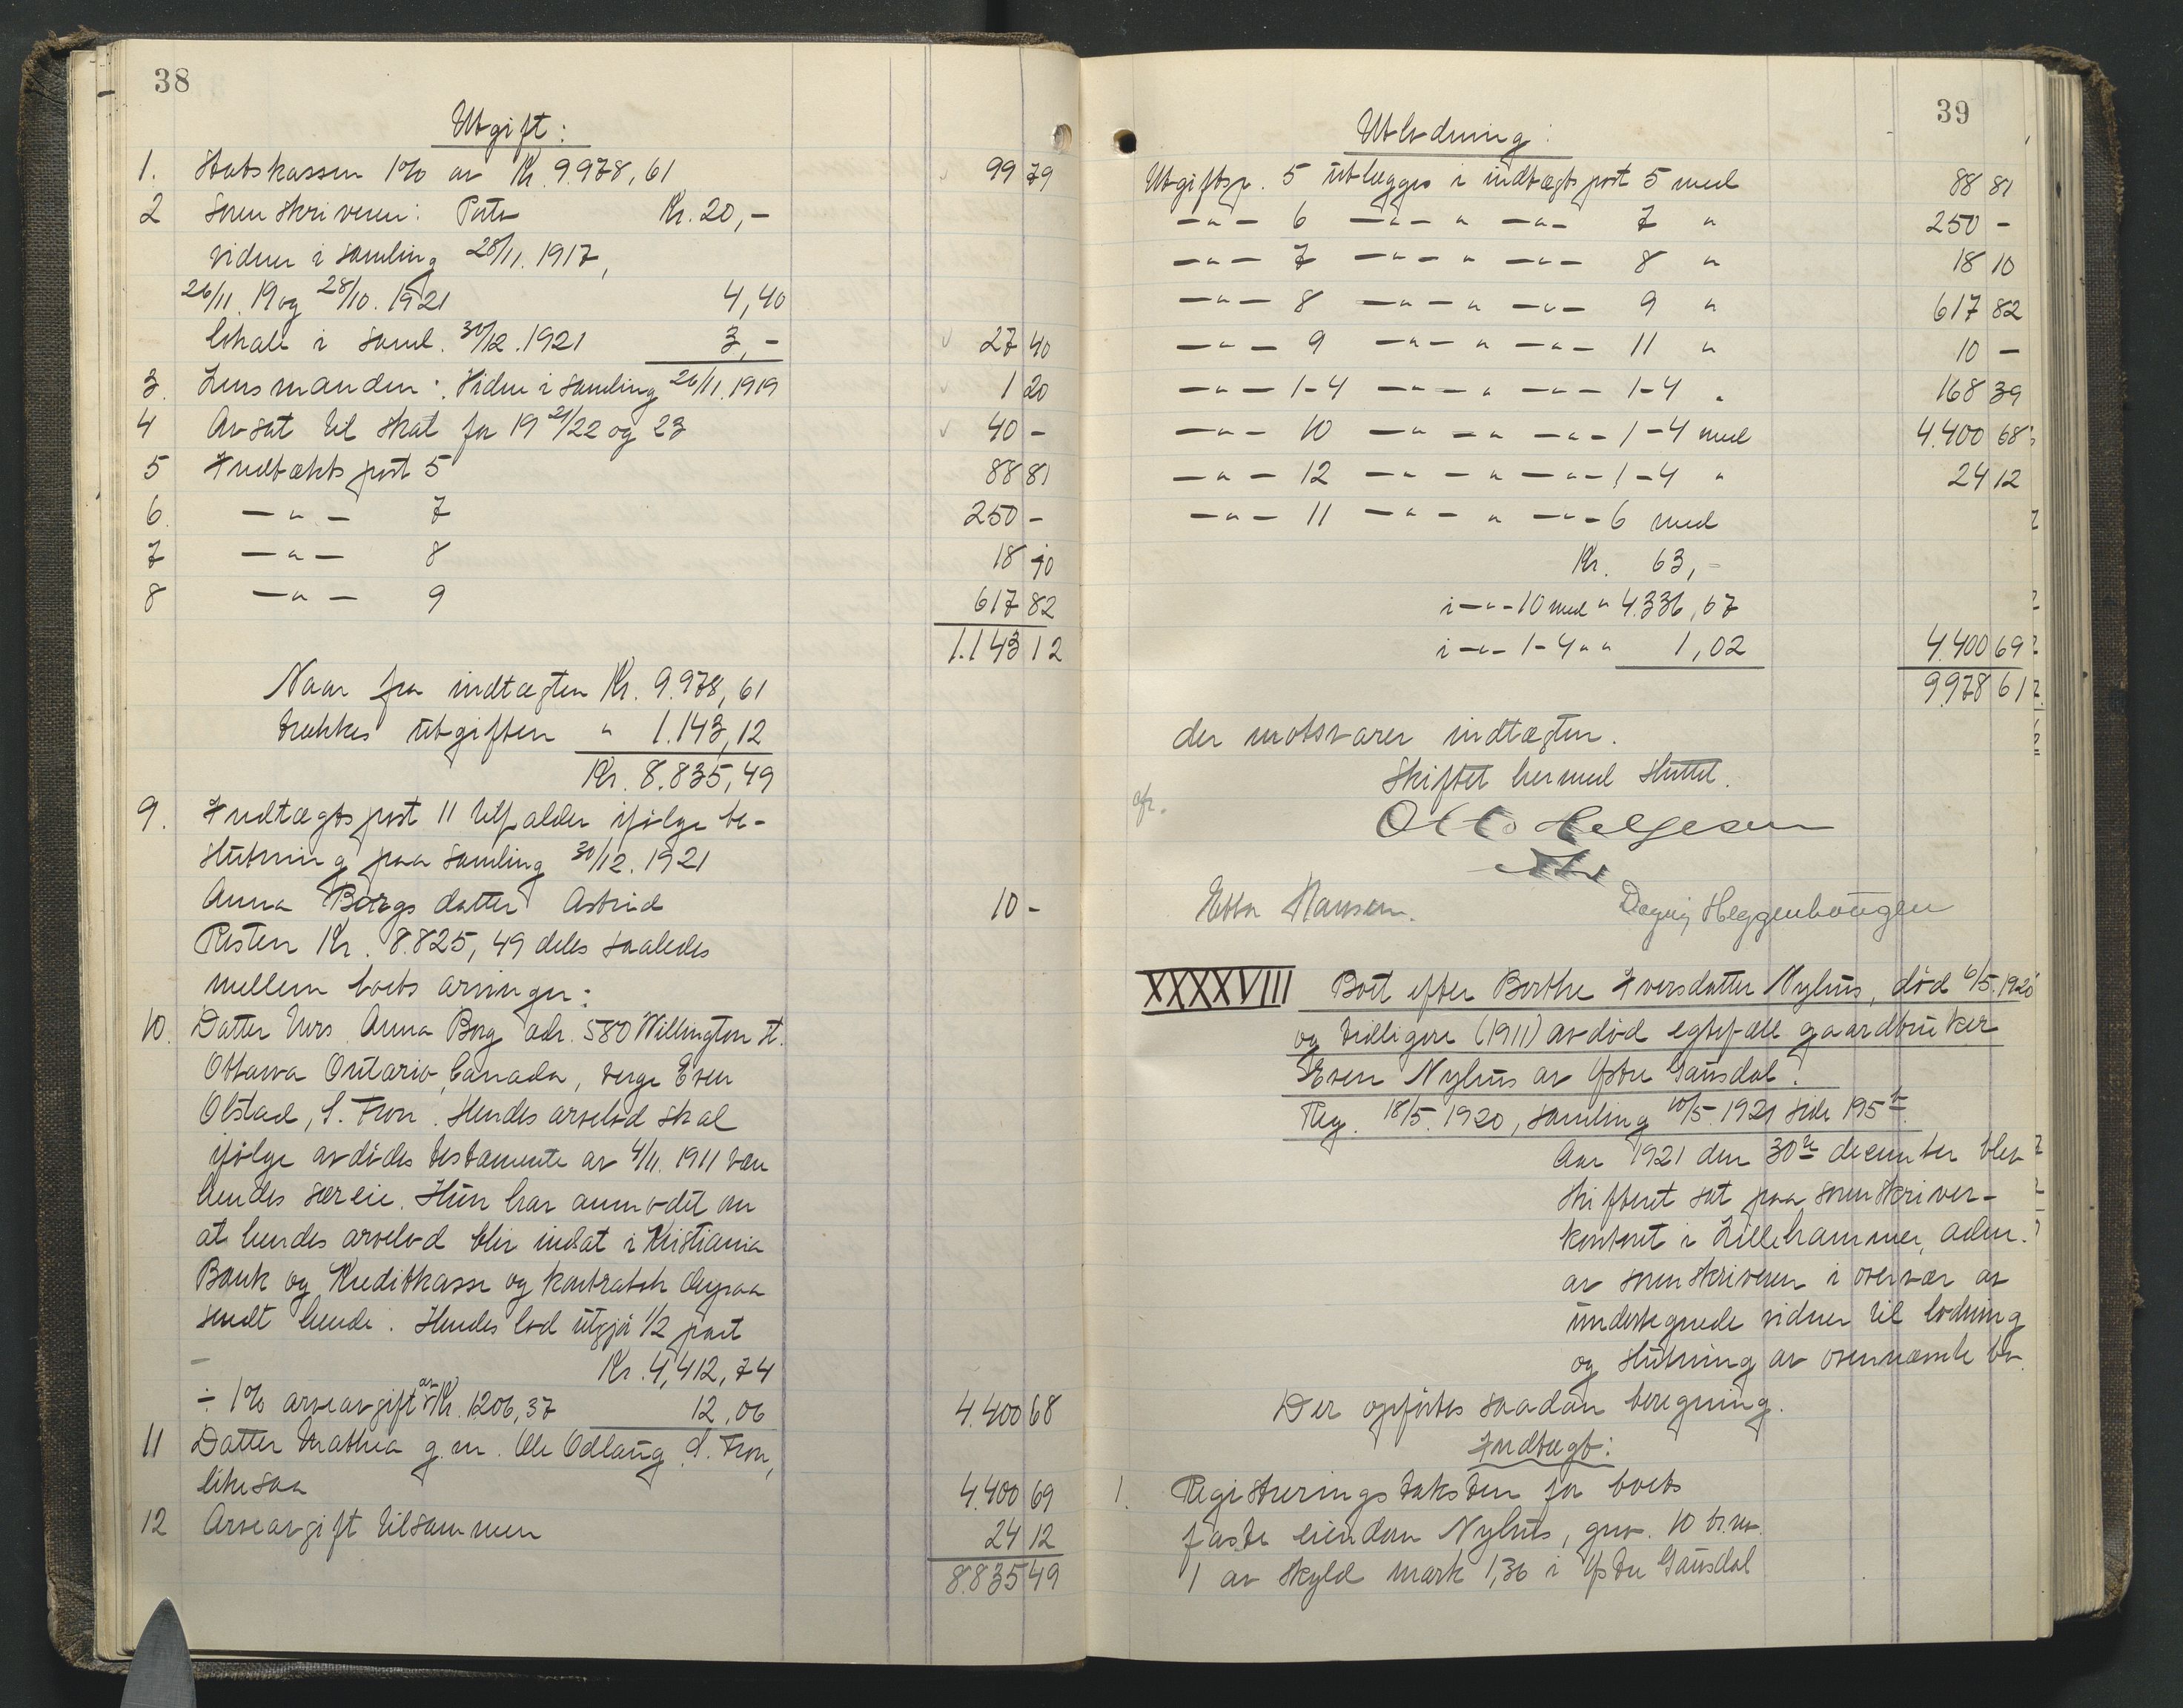 38
Utgift:
1. Statskassen 1% av Kr. 9.978,61 99 79
2 Sorenskriveren: Porto Kr. 20,-
vidner i samling 28/11. 1917,
26/11. 19 og 28/10. 1921 4,40
lokale i saml. 30/12. 1921 3,- 27 40
3. Lensmanden: Vidne i samling 26/11. 1919 1 20
4 Avsat til skat for 19 21/22 og 23 40 -
5 Indtækts post 5 88 81
6. — " — 7 250 -
7 — " — 8 18 10
8 — " — 9 617 82
1.143 12
Naar fra indtægten Kr. 9.978,61
trækkes utgiften " 1.143,12
Kr. 8.835,49
9. Indtægtspost 11 tilfalder ifølge be-
slutning paa samling 30/12. 1921
Anna Borgs datter Astrid 10 -
Resten Kr. 8.825,49 deles saaledes
mellem boets arvinger:
10. Datter Mrs. Anna Borg adr. 580 Willington st.
Ottawa Ontario, Canada, verge Even
Olstad, S. Fron. Hendes arvelod skal
ifølge avdødes testamente av 4/11. 1911 være
hendes særeie. Hun har anmodet om
at hendes arvelod blir indsat i Kristiania
Bank og Kreditkasse og kontrabok derpaa
sendt hende. Hendes lod utgjør 1/2 part
Kr. 4,412,74
÷ 1% arveavgift av Kr. 1206,37 12,06 4.400 68
11 Datter Mathea g.m. Ole Odlaug S. Fron,
likesaa 4.400 69
12 Arveavgift tilsammen 24 12
8.835 49
39
Utlodning:
Utgiftsp. 5 utlægges i indtægtspost 5 med 88 81
— " — 6 — " — " — " — 7 " 250 -
— " — 7 — " — " — " — 8 " 18 10
— " — 8 — " — " — " — 9 " 617 82
— " — 9 — " — " — " — 11 " 10 —
— " — 1-4 — " — " — " — 1-4 " 168 39
— " — 10 — " — " — " — 1-4 med 4.400 68
— " — 12 — " — " — " — 1-4 " 24 12
— " — 11 — " — " — " — 6 med
Kr. 63,-
i — " — 10 med " 4.336,67
i — " — 1-4 " " 1,02 4.400 69
9978 61
der motsvarer indtægten.
Skiftet hermed sluttet.
Otto Helgesen
Ebba Hansen. Dagny Heggenhougen
XXXXVIII Boet efter Berthe Iversdatter Nyhus, død 6/5. 1920
og tidligere (1911) avdød egtefælle gaardbruker
Even Nyhus av Østre Gausdal.
Reg. 18/5. 1920, samling 10/5. 1921 side 195
Aar 1921 den 30te december blev
skifteret sat paa sorenskriver-
kontoret i Lillehammer, adm.
av sorenskriveren i overvær av
undertegnede vidner til lodning
og slutning av ovennævnte bo.
Der opførtes saadan beregning.
Indtægt:
1. Registreringstaksten for boets
faste eiendom Nyhus, gnr. 10 br.nr.
1 av skyld mark 1,36 i Østre Gausdal